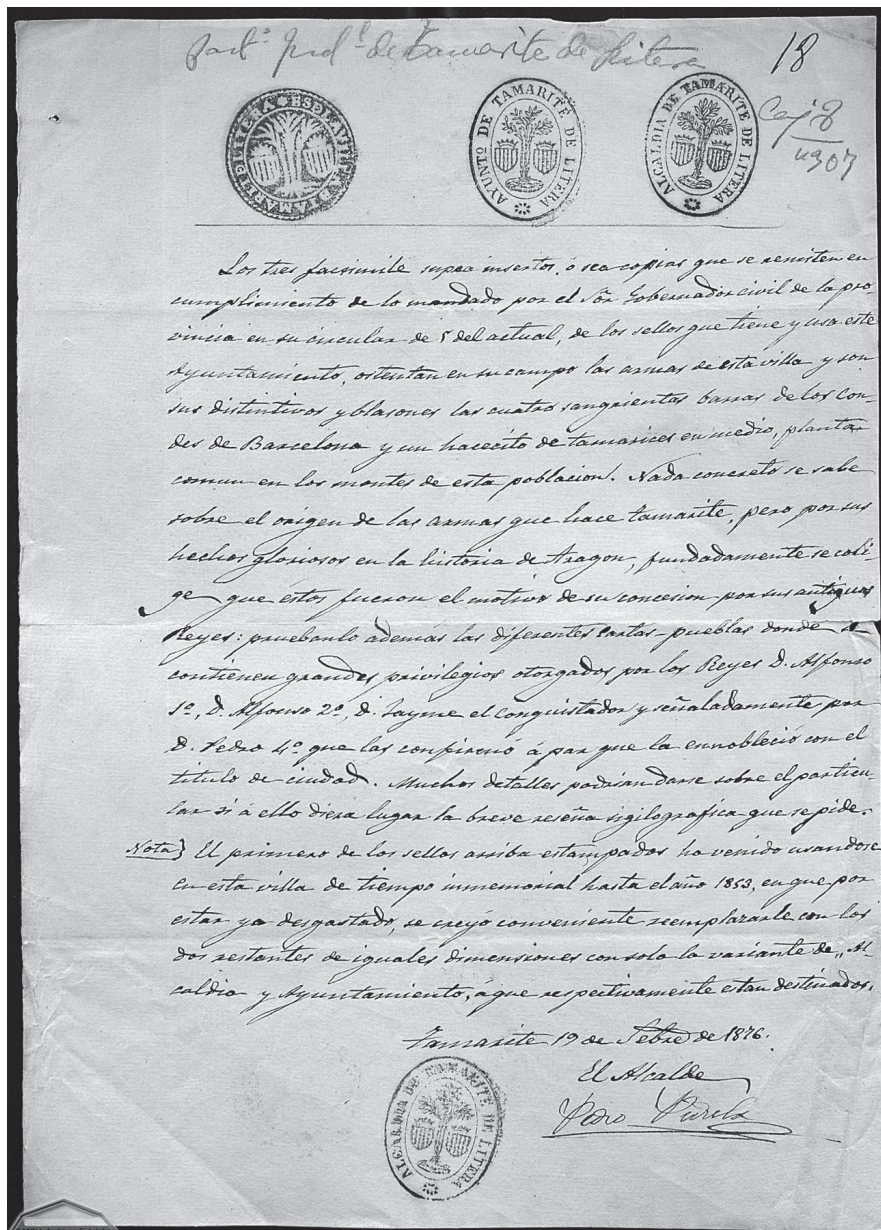 Part.º Jud.l de Tamarite de Litera
18
Caj 8
nº 307
AYUNTº DE TAMARITE DE LITERA
ALCALDIA DE TAMARITE DE LITERA
Los tres facsimile supra insertos, ó sea copias que se remiten en
cumplimiento de lo mandado por el Sõr Gobernador civil de la pro-
vincia en su circular de 5 del actual, de los sellos que tiene y usa este
Ayuntamiento, ostentan en su campo las armas de esta villa y son
sus distintivos y blasones las cuatro sangrientas barras de los Con-
des de Barcelona y un hacecito de tamarices en medio, planta
comun en los montes de esta poblacion. Nada concreto se sabe
sobre el origen de las armas que hace tamarite, pero por sus
hechos gloriosos en la historia de Aragon, fundadamente se coli-
ge que éstos fueron el motivo de su concesion por sus antiguos
Reyes: pruebanlo además las diferentes Cartas-pueblas donde se
contienen grandes privilegios otorgados por los Reyes D. Alfonso
1º, D. Alfonso 2º, D. Jayme el conquistador y señaladamente por
D. Pedro 4º que las confirmó á par que la ennobleció con el
titulo de ciudad. Muchos detalles podrian darse sobre el particu-
lar si á ello diera lugar la breve reseña sigilografica que se pide.
Nota} El primero de los sellos arriba estampados ha venido usandose
en esta villa de tiempo inmemorial hasta el año 1853, en que por
estar ya desgastado, se creyó conveniente reemplazarle con los
dos restantes de iguales dimensiones con sola la variante de „Al-
caldia y Ayuntamiento, á que respectivamente estan destinados.
Tamarite 19 de Sebre de 1876.
El Alcalde
Pedro
ALCALDIA DE TAMARITE DE LITERA